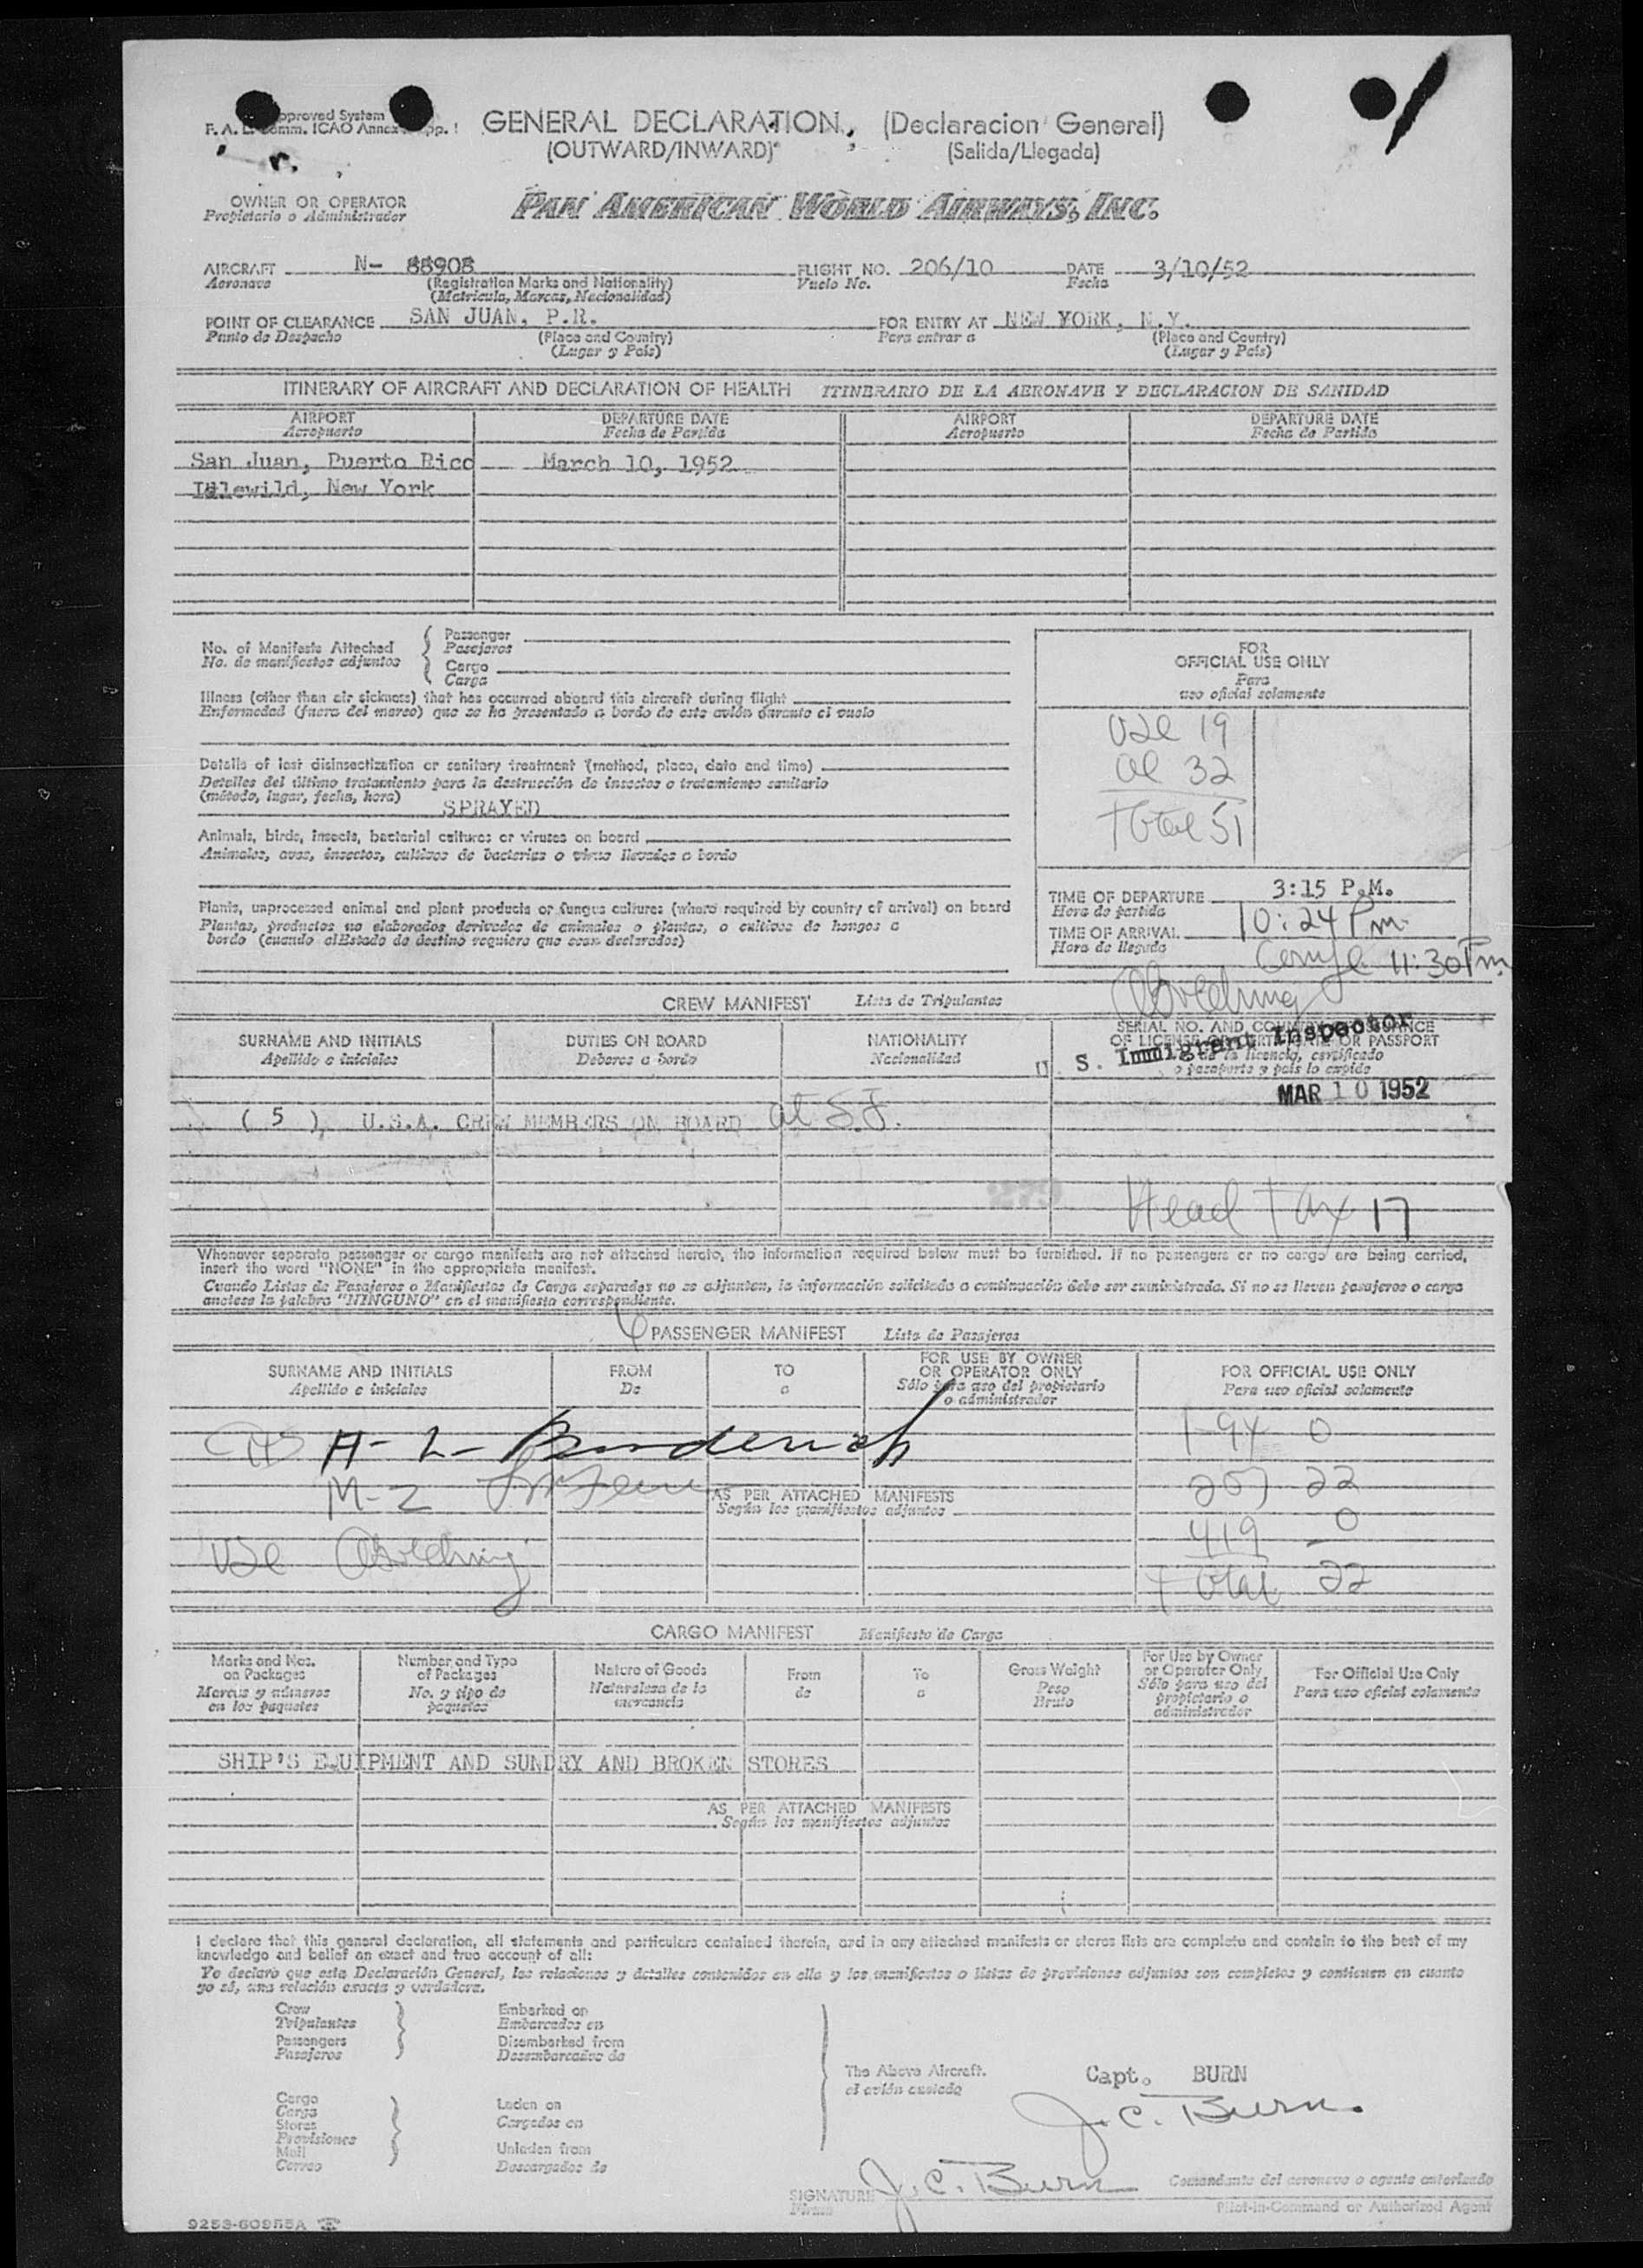 Approved System
F. A. L. Comm. ICAO Annex App. 1
GENERAL DECLARATION, (Declaracion General)
(OUTWARD/INWARD) (Salida/Llegada)
OWNER OR OPERATOR
Propietario o Administrador
PAN AMERICAN WORLD AIRWAYS, INC.
AIRCRAFT N- 88908 FLIGHT NO. 206/10 DATE 3/10/52
Aeronave (Registration Marks and Nationality) Vuelo No. Fecha
(Matricula, Marcas, Nacionalidad)
POINT OF CLEARANCE SAN JUAN, P.R. FOR ENTRY AT NEW YORK, N.Y.
Punto de Despacho (Place and Country) Para entrar a (Place and Country)
(Lugar y País) (Lugar y País)
ITINERARY OF AIRCRAFT AND DECLARATION OF HEALTH ITINERARIO DE LA AERONAVE Y DECLARACION DE SANIDAD
AIRPORT DEPARTURE DATE AIRPORT DEPARTURE DATE
Aeropuerto Fecha de Partida Aeropuerto Fecha de Partida
San Juan, Puerto Rico March 10, 1952
Idlewild, New York
No. of Manifests Attached
No. de manifiestos adjuntos
Passenger
Pasajeros
Cargo
Carga
Illness (other than air sickness) that has occurred aboard this aircraft during flight
Enfermedad (fuera del mareo) que se ha presentado a bordo de este avión durante el vuelo
Details of last disinsectization or sanitary treatment (method, place, date and time)
Detalles del último tratamiento para la destrucción de insectos o tratamiento sanitario
(método, lugar, fecha, hora)
SPRAYED
Animals, birds, insects, bacterial cultures or viruses on board
Animales, aves, insectos, cultivos de bacterias o virus llevados a bordo
Plants, unprocessed animal and plant products or fungus cultures (where required by country of arrival) on board
Plantas, productos no elaborados derivados de animales o plantas, o cultivos de hongos a
bordo (cuando el Estado de destino requiere que sean declarados)
FOR
OFFICIAL USE ONLY
Para
uso oficial solamente
USC 19
al 32
Total 51
TIME OF DEPARTURE 3:15 P.M.
Hora de partida
TIME OF ARRIVAL 10:24 Pm.
Hora de llegada
11:30 Pm
CREW MANIFEST Lista de Tripulantes
SURNAME AND INITIALS DUTIES ON BOARD NATIONALITY
Apellido e iniciales Deberes a bordo Nacionalidad
SERIAL NO. AND COUNTRY OF ISSUANCE
OF LICENSE, CERTIFICATE OR PASSPORT
de la licencia, certificado
o pasaporte y país lo expide
U. S. Immigrant Inspector
MAR 10 1952
( 5 ) U.S.A. CREW MEMBERS ON BOARD at S.J.
279
Head Tax 17
Whenever separate passenger or cargo manifests are not attached hereto, the information required below must be furnished. If no passengers or no cargo are being carried,
insert the word "NONE" in the appropriate manifest.
Cuando Listas de Pasajeros o Manifiestos de Carga separados no se adjunten, la información solicitada a continuación debe ser suministrada. Si no se llevan pasajeros o carga
anótese la palabra "NINGUNO" en el manifiesto correspondiente.
6 PASSENGER MANIFEST Lista de Pasajeros
SURNAME AND INITIALS FROM TO
Apellido e iniciales De a
FOR USE BY OWNER
OR OPERATOR ONLY
Sólo para uso del propietario
o administrador
FOR OFFICIAL USE ONLY
Para uso oficial solamente
H- L- 
I-94 0
M-2
AS PER ATTACHED MANIFESTS
Según los manifiestos adjuntos
257 22
419 0
USC
Total 22
CARGO MANIFEST Manifiesto de Carga
Marks and Nos.
on Packages
Marcas y números
en los paquetes
Number and Type
of Packages
No. y tipo de
paquetes
Nature of Goods
Naturaleza de la
mercancía
From
de
To
a
Gross Weight
Peso
Bruto
For Use by Owner
or Operator Only
Sólo para uso del
propietario o
administrador
For Official Use Only
Para uso oficial solamente
SHIP'S EQUIPMENT AND SUNDRY AND BROKEN STORES
AS PER ATTACHED MANIFESTS
Según los manifiestos adjuntos
I declare that this general declaration, all statements and particulars contained therein, and in any attached manifests or stores lists are complete and contain to the best of my
knowledge and belief an exact and true account of all:
Yo declaro que esta Declaración General, las relaciones y detalles contenidos en ella y los manifiestos o listas de provisiones adjuntos son completos y contienen en cuanto
yo sé, una relación exacta y verdadera.
Crew
Tripulantes
Passengers
Pasajeros
Embarked on
Embarcados en
Disembarked from
Desembarcados de
Cargo
Carga
Stores
Provisiones
Mail
Correo
Laden on
Cargados en
Unladen from
Descargados de
The Above Aircraft.
el avión aislado
Capt. BURN
J. C. Burn.
SIGNATURE J. C. Burn
Firma
Comandante del aeronave o agente autorizado
Pilot-in-Command or Authorized Agent
9253-60955A